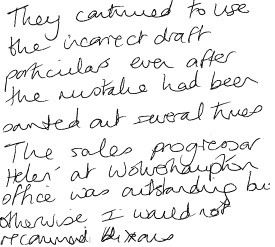 They continued to use
the incorrect draft
particulars even after
the mistake had been
pointed out several times
The sales progressor
Helen at Wolverhampton
office was outstanding bu
otherwise I would not
recommend